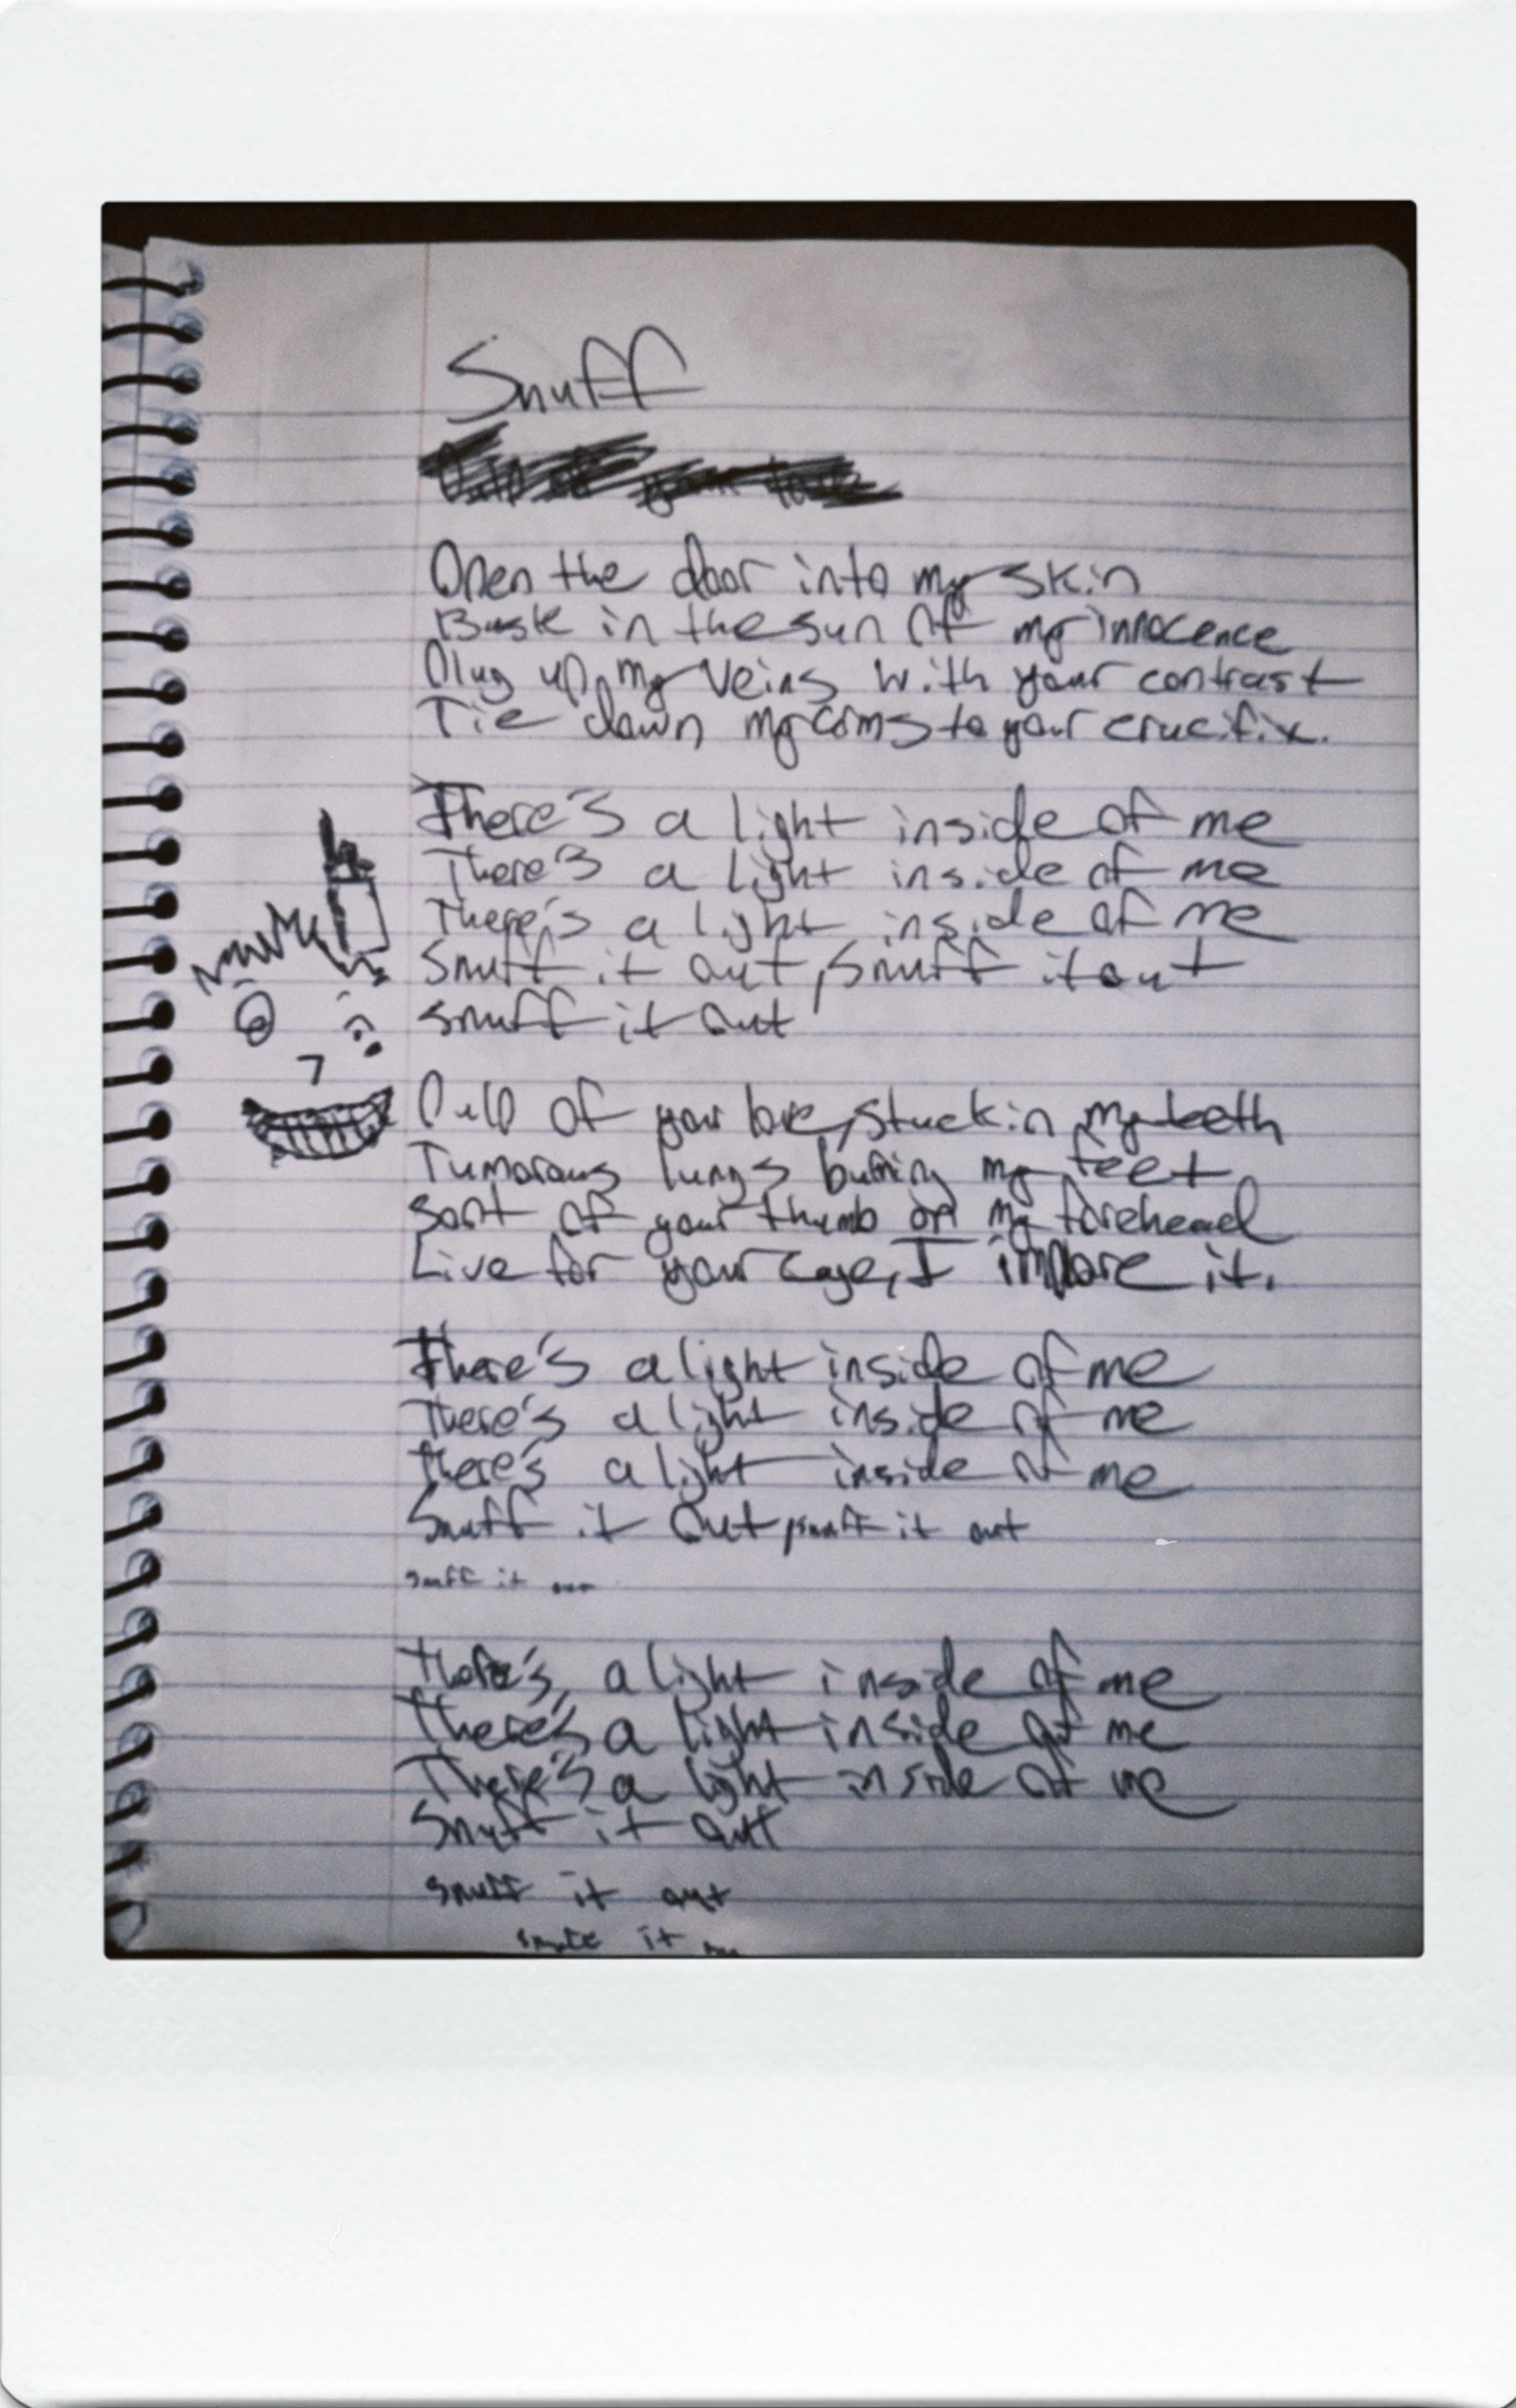 Snuff
Open the door into my skin
Bask in the sun of my innocence
Plug up my veins with your contrast
Tie down my arms to your crucifix.
There's a light inside of me
There's a light inside of me
There's a light inside of me
Snuff it out, snuff it out
snuff it out
Pulp of your love, stuck in my teeth
Tumorous lungs burning my feet
Sort of your thumb on my forehead
Live for your cage, I implore it.
There's a light inside of me
There's a light inside of me
There's a light inside of me
Snuff it out, snuff it out
snuff it out
There's a light inside of me
There's a light inside of me
There's a light inside of me
Snuff it out
snuff it out
snuff it